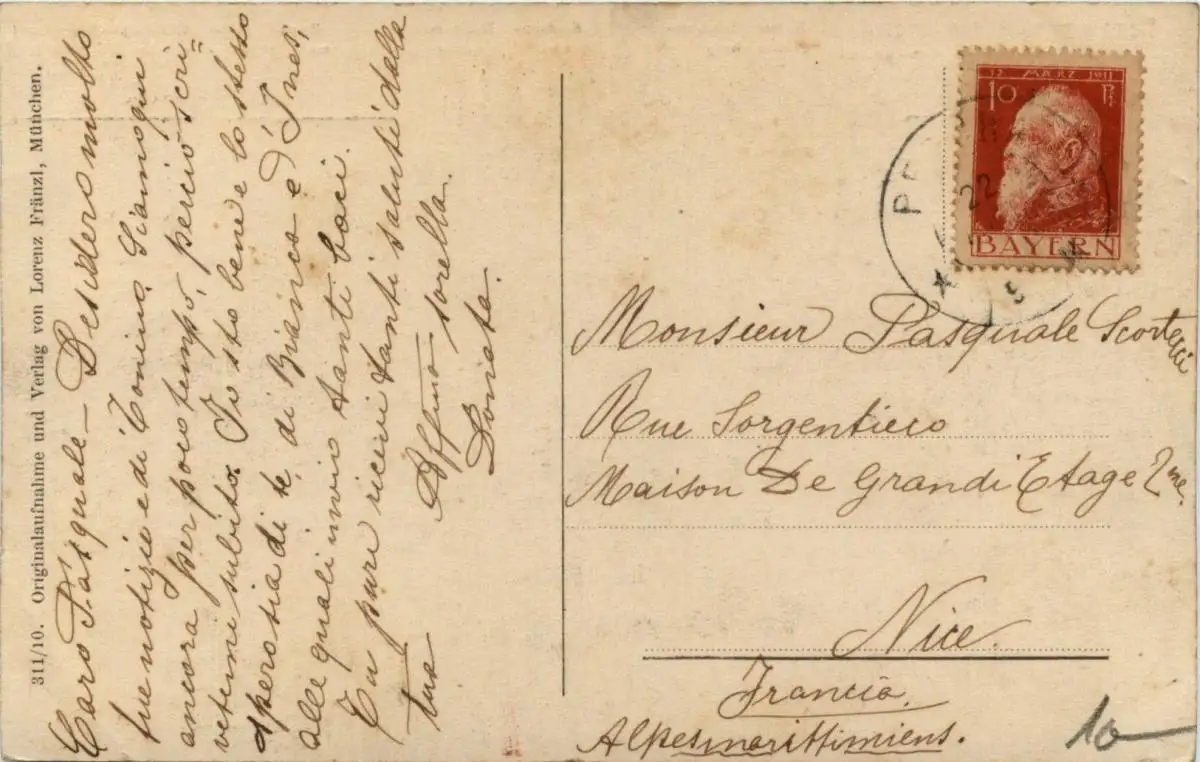 311/10. Originalaufnahme und Verlag von Lorenz Fränzl, München.
Caro Pasquale – Desidero molto
tue notizie e di Tonino. Siamo qui
ancora per poco tempo, perciò scri=
vetemi subito. Io sto bene e lo stesso
spero sia di te, di Bianca e d'Ines,
alle quali invio tanti baci.
Tu pure ricevi tanti saluti dalla
tua Affma sorella.
Doriste.
12. MÄRZ 1911
10 Pf
BAYERN
22
Monsieur Pasquale Scortecci
Rue Sorgentiero
Maison De Grandi Etage 2me.
Nice.
Francia.
Alpesmarittimiens.
10